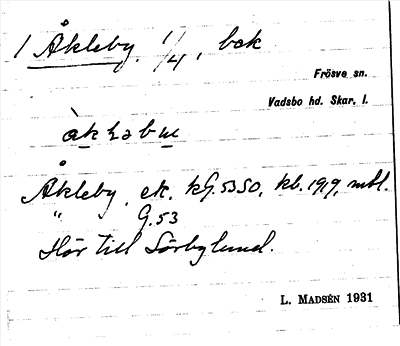 1 Åkleby. 1/4, bok
Frösve sn.
Vadsbo hd. Skar. l.
Åkleby, ek. KG.5350, kb. 1919, mtl.
" G.53
Hör till Sörbylund.
L. MADSÉN 1931